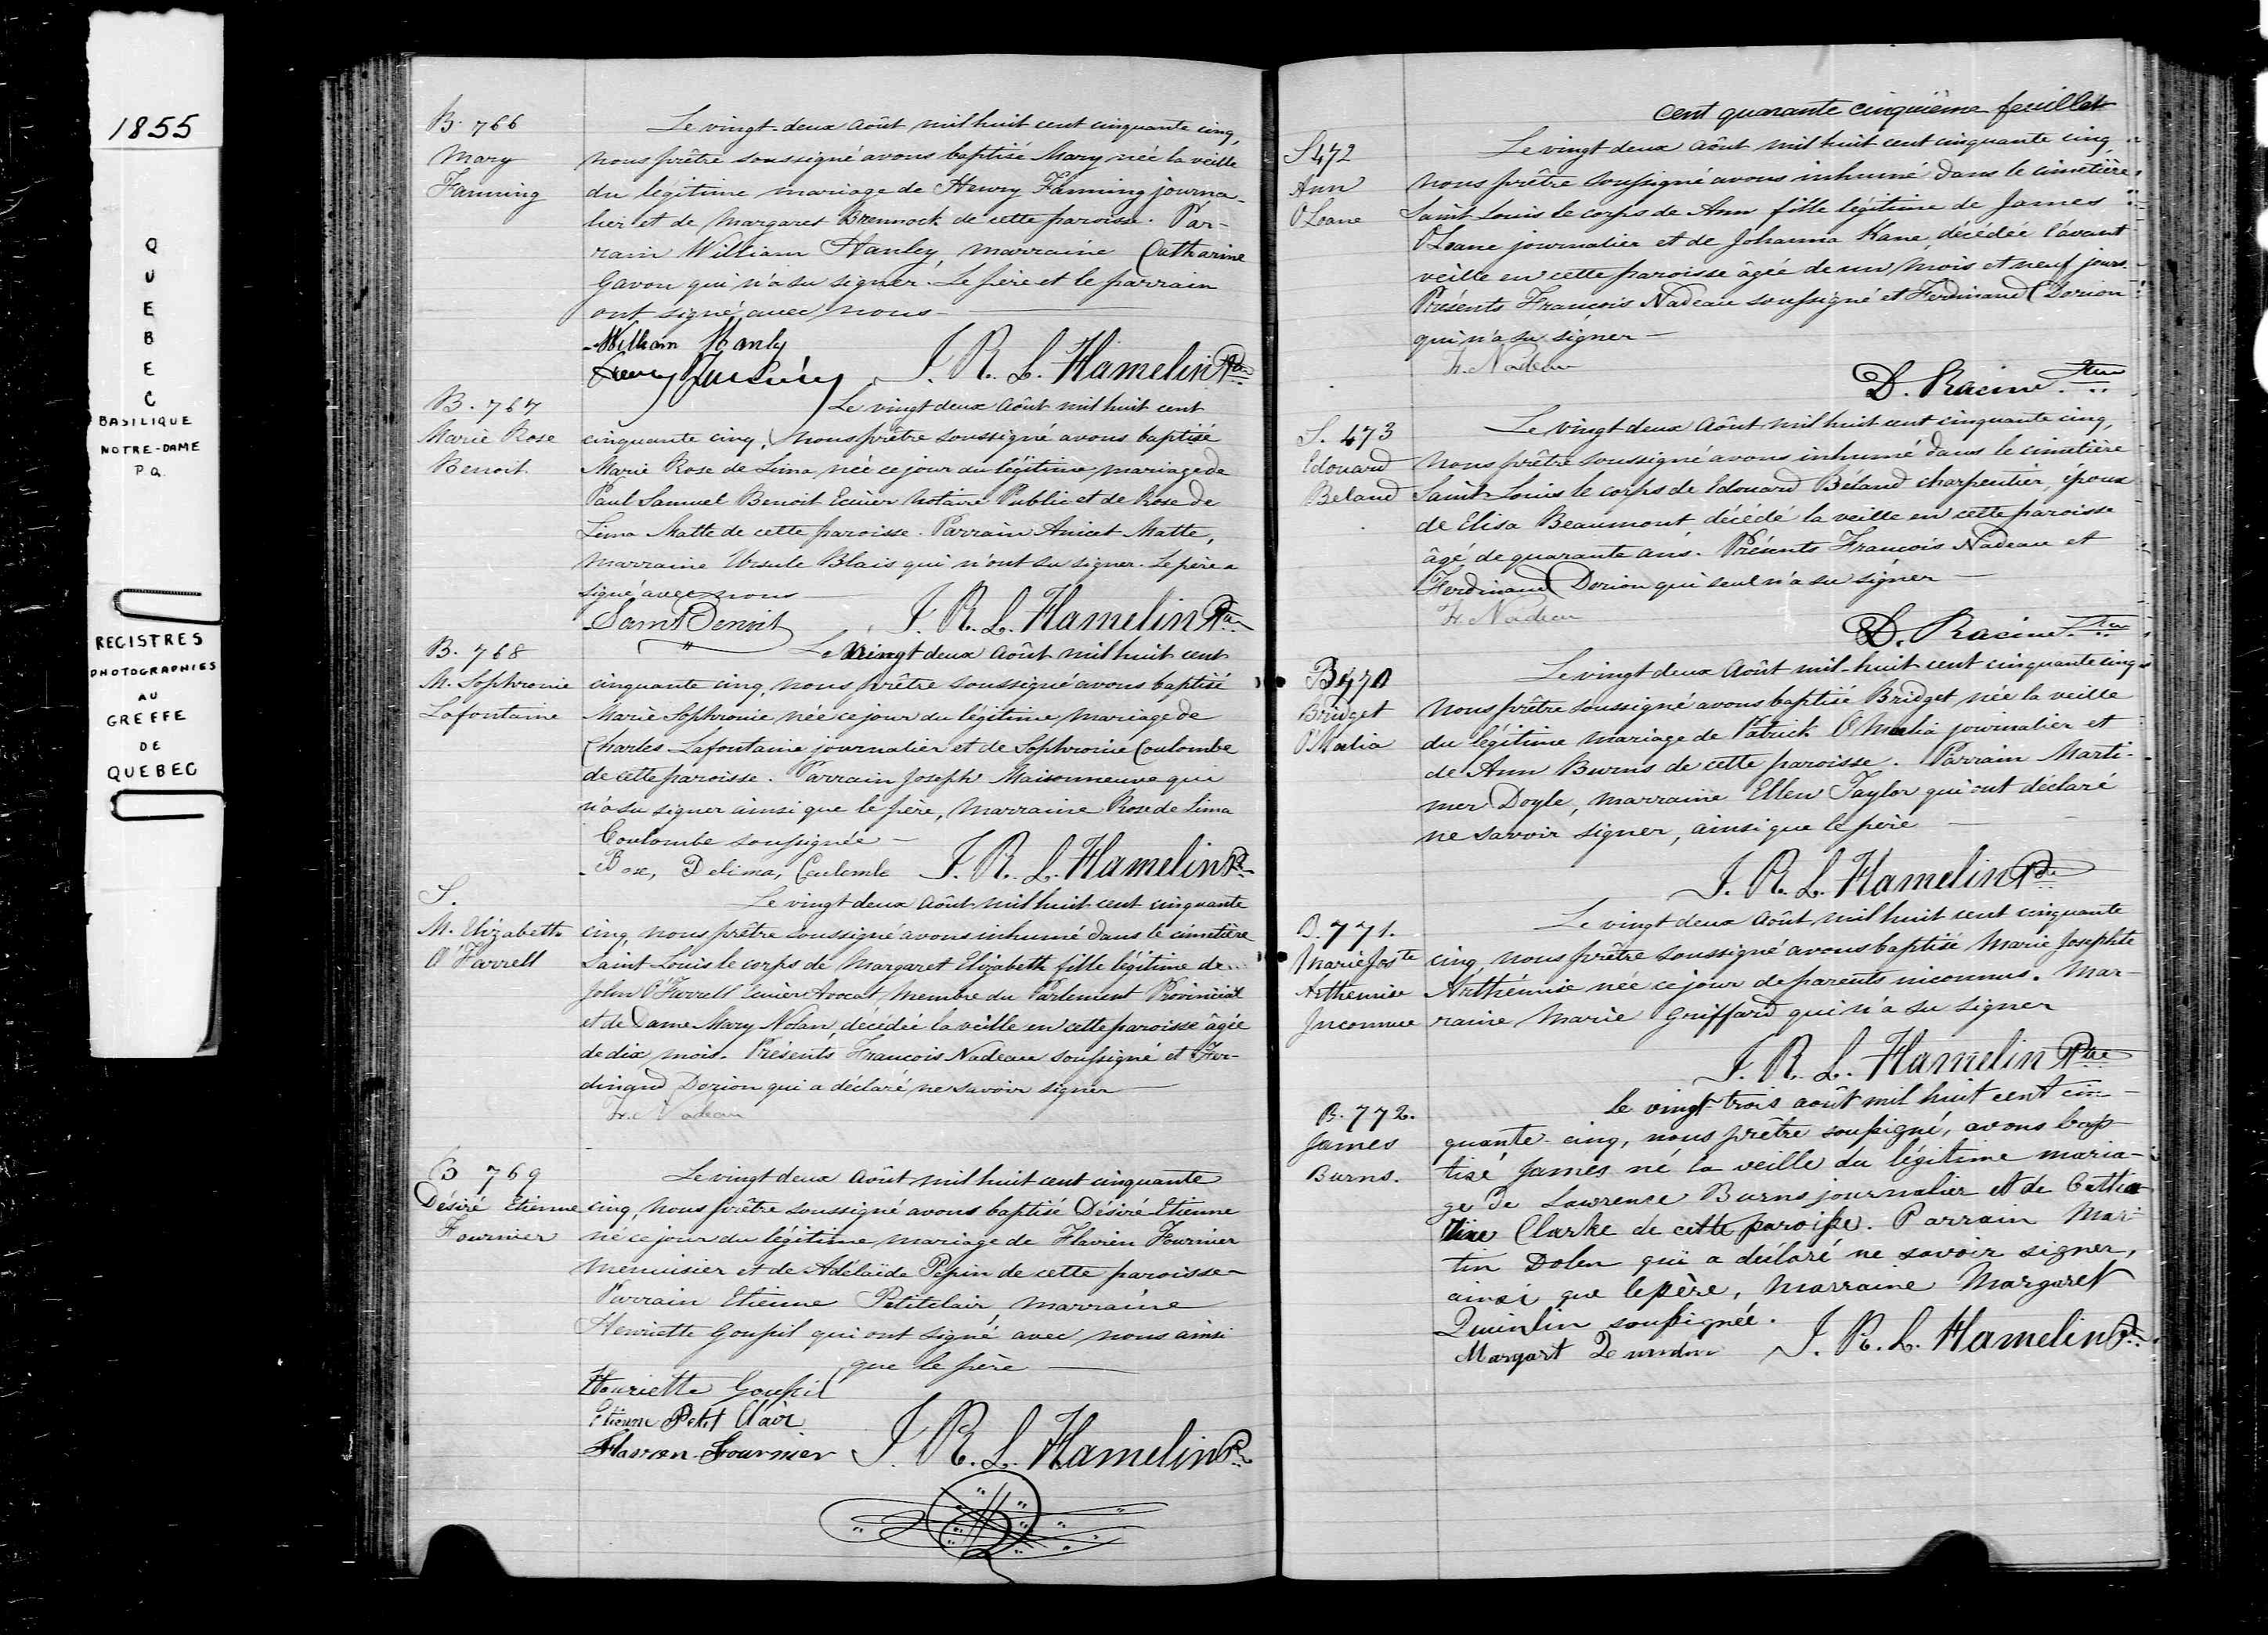 1855
Q
U
E
B
E
C
BASILIQUE
NOTRE-DAME
P.Q.
REGISTRES
PHOTOGRAPHIES
AU
GREFFE
DE
QUEBEC
B. 766
Mary
Fanning
Le vingt-deux août mil huit cent cinquante cinq,
nous prêtre soussigné avons baptisé Mary née la veille
du légitime mariage de Henry Fanning journa-
lier et de Margaret Brennock de cette paroisse. Par-
rain William Hanley, marraine Catharine
Gavon qui n'a su signer. Le père et le parrain
ont signé avec nous
William Hanly
J. R. L. Hamelin Ptre
B. 767
Marie Rose
Benoit
Le vingt deux août mil huit cent
cinquante cinq, nous prêtre soussigné avons baptisé
Marie Rose de Lima, née ce jour du légitime mariage de
Paul Samuel Benoit Ecuier Notaire Public et de Rose de
Lima Matte de cette paroisse. Parrain Anicet Matte,
marraine Ursule Blais qui n'ont su signer. Le père a
signé avec nous
Sam Benoit
J. R. L. Hamelin Ptre
B. 768
M. Sophronie
Lafontaine
Le vingt deux août mil huit cent
cinquante cinq, nous prêtre soussigné avons baptisé
Marie Sophronie née ce jour du légitime mariage de
Charles Lafontaine journalier et de Sophronie Coulombe
de cette paroisse. Parrain Joseph Maisonneuve qui
n'a su signer ainsi que le père, marraine Rose de Lima
Coulombe soussignée
Rose, Delima, Coulombe J. R. L. Hamelin Ptre
S.
M. Elizabeth
O'Farrell
Le vingt deux août mil huit cent cinquante
cinq, nous prêtre soussigné avons inhumé dans le cimetière
Saint Louis le corps de Margaret Elizabeth fille légitime de
John O'Farrell Ecuier Avocat, Membre du Parlement Provincial
et de Dame Mary Nolan, décédée la veille en cette paroisse âgée
de dix mois. Présents François Nadeau soussigné et Fer-
dinand Dorion qui a déclaré ne savoir signer
Fr. Nadeau
B 769
Désiré Etienne
Fournier
Le vingt deux août mil huit cent cinquante
cinq, nous prêtre soussigné avons baptisé Désiré Etienne
né ce jour du légitime mariage de Flavien Fournier
menuisier et de Adélaïde Pepin de cette paroisse
Parrain Etienne Petitclair, marraine
Henriette Goupil qui ont signé avec nous ainsi
que le père
Henriette Goupil
Etienne Petit Clair
Flavien Fournier J. R. L. Hamelin Ptre
cent quarante cinquième feuillet
S 472
Ann
O'Loane
Le vingt deux août mil huit cent cinquante cinq
nous prêtre soussigné avons inhumé dans le cimetière
Saint Louis le corps de Ann fille légitime de James
O'Loane journalier et de Johanna Kane, décédée l'avant
veille en cette paroisse âgée de un mois et neuf jours.
Présents François Nadeau soussigné et Ferdinand Dorion
qui n'a su signer
Fr. Nadeau
D. Racine Ptre
S. 473
Edouard
Beland
Le vingt deux août mil huit cent cinquante cinq,
nous prêtre soussigné avons inhumé dans le cimetière
Saint Louis le corps de Edouard Béland charpentier, époux
de Elisa Beaumont décédé la veille en cette paroisse
âgé de quarante ans. Présents François Nadeau et
Ferdinand Dorion qui seul n'a su signer
Fr. Nadeau
D. Racine Ptre
B 770
Bridget
O'Malia
Le vingt deux août mil-huit cent cinquante cinq
nous prêtre soussigné avons baptisé Bridget née la veille
du légitime mariage de Patrick O'Malia journalier et
de Ann Burns de cette paroisse. Parrain Marti-
mer Doyle, marraine Ellen Taylor qui ont déclaré
ne savoir signer, ainsi que le père
J. R. L. Hamelin Ptre
B. 771.
Marie Joste
Arthémise
Inconnue
Le vingt deux août mil huit cent cinquante
cinq nous prêtre soussigné avons baptisé Marie Josephte
Arthémise née ce jour de parents inconnus. Mar-
raine Marie Griffard qui n'a su signer
J. R. L. Hamelin Ptre
B. 772.
James
Burns.
Le vingt-trois août mil huit cent cin-
quante-cinq, nous prêtre soussigné, avons bap-
tisé James né la veille du légitime maria-
ge de Lawrence Burns journalier et de Catha
rine Clarke de cette paroisse. Parrain Mar-
tin Dolen qui a déclaré ne savoir signer,
ainsi que le père, Marraine Margaret
Quinlin soussignée.
Margart J. R. L. Hamelin Ptre